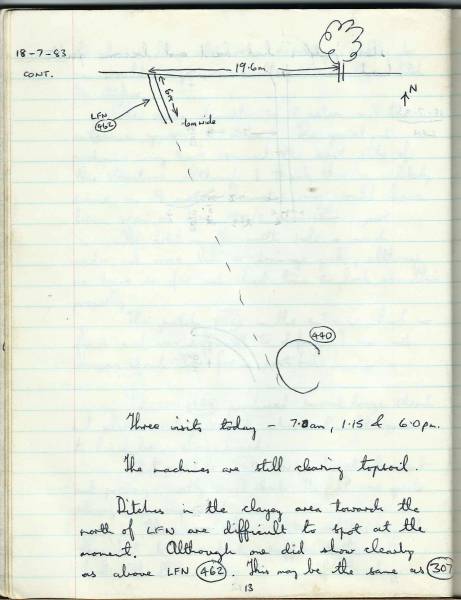 18-7-83
CONT.
19.6m
N
6m
LFN
462
.6m wide
440
Three visits today - 7.0am, 1.15 & 6.0pm.
The machines are still clearing topsoil.
Ditches in the clayey area towards the
north of LFN are difficult to spot at the
moment. Although one did show clearly
as above LFN 462. This may be the same as 307
13